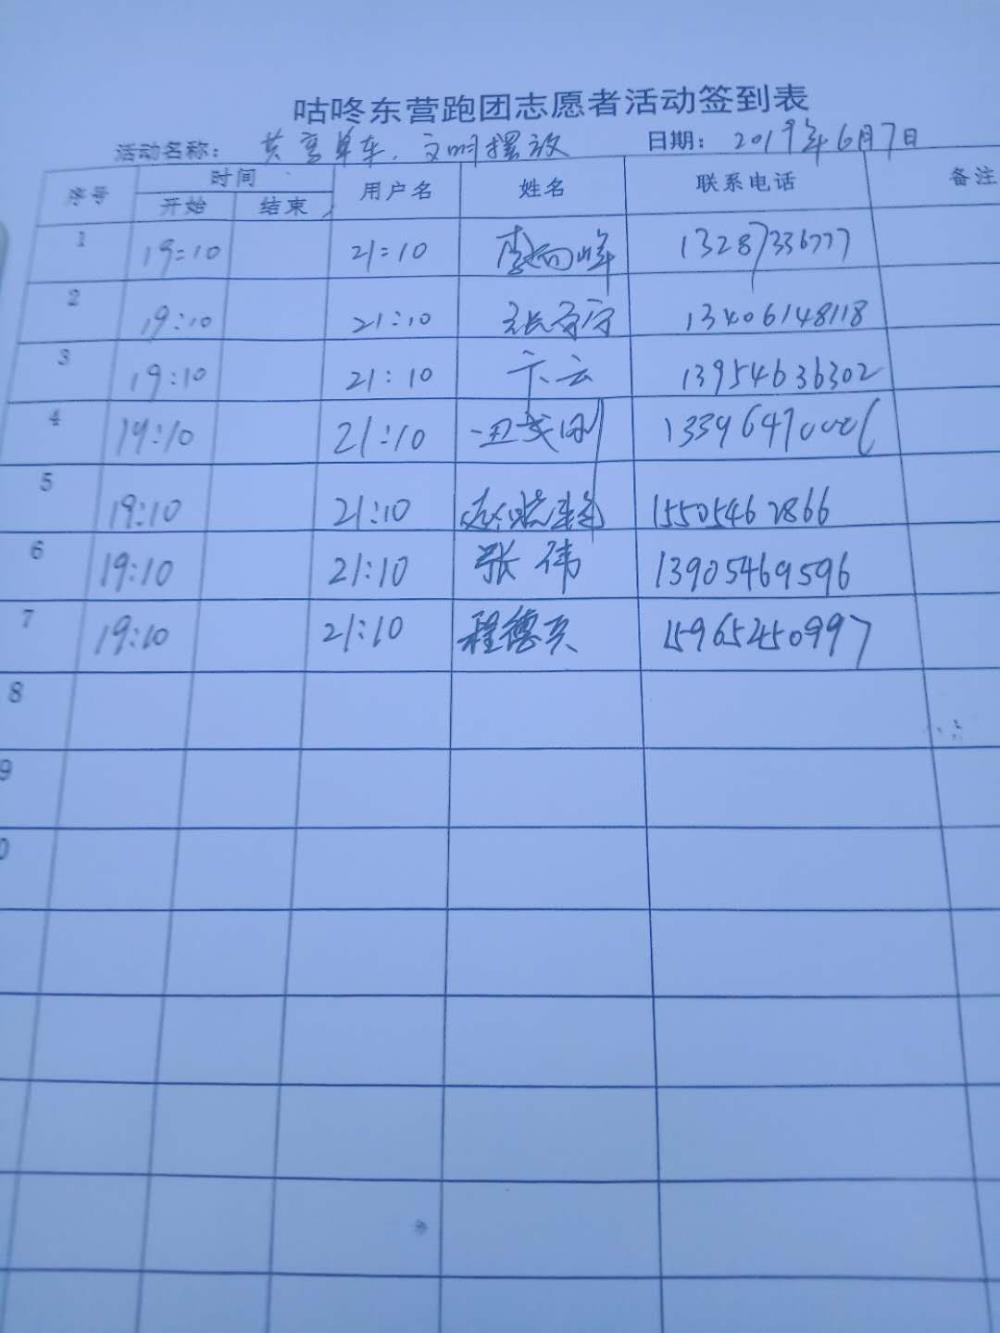 咕咚东营跑团志愿者活动签到表
活动名称： 共享单车、文明摆放 日期： 2019年6月7日
序号 时间 用户名 姓名 联系电话 备注
开始 结束
1 19:10 21:10 李向峰 13287336777
2 19:10 21:10 13406148118
3 19:10 21:10 卞云 13954636302
4 19:10 21:10
5 19:10 21:10 15505462866
6 19:10 21:10 张伟 13905469596
7 19:10 21:10 程德 15965250997
8
9
0